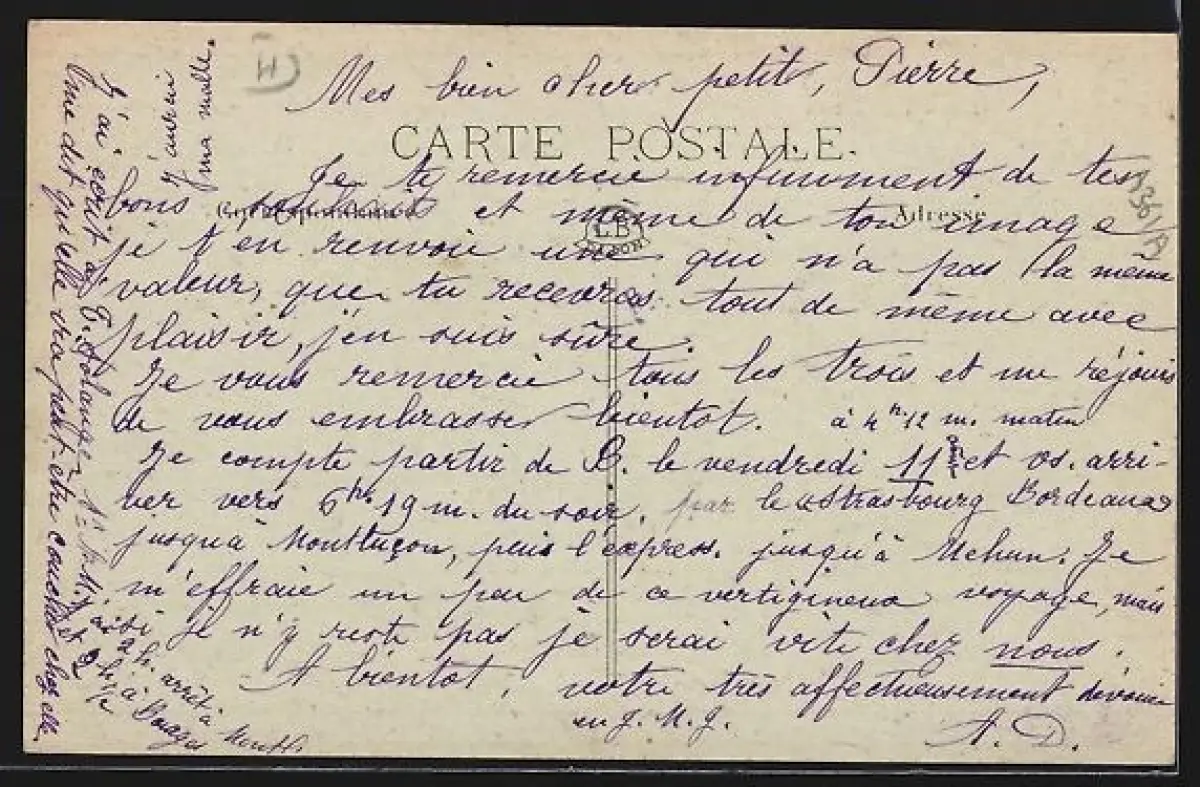 Mes bien cher petit, Pierre,
CARTE POSTALE.
Je te remercie infiniment de tes
bons souhaits et même de ton image
Correspondance
Adresse
LB
DIJON
je t'en renvoie une qui n'a pas la même
valeur, que tu recevras tout de même avec
plaisir, j'en suis sûre.
Je vous remercie tous les trois et me réjouis
de vous embrasser bientot. à 4h.12 m. matin
Je compte partir de B. le vendredi 11 et vs. arri-
ver vers 6hr 19 m. du soir, par le Strasbourg Bordeaux
jusqu'à Montluçon, puis l'express. jusqu'à Mehun. Je
m'effraie un peu de ce vertigineux voyage, mais
si je n'y reste pas je serai vite chez nous.
A bientot, votre très affectueusement dévouée
en J. M. J.
A. D.
J'ai écrit à T. Solange
me dit qu'elle ira peut-être coucher chez elle.
J'aurai
ma malle.
J'ai 2 h. arrêt à
et 2 h. 1/2 à Bourges